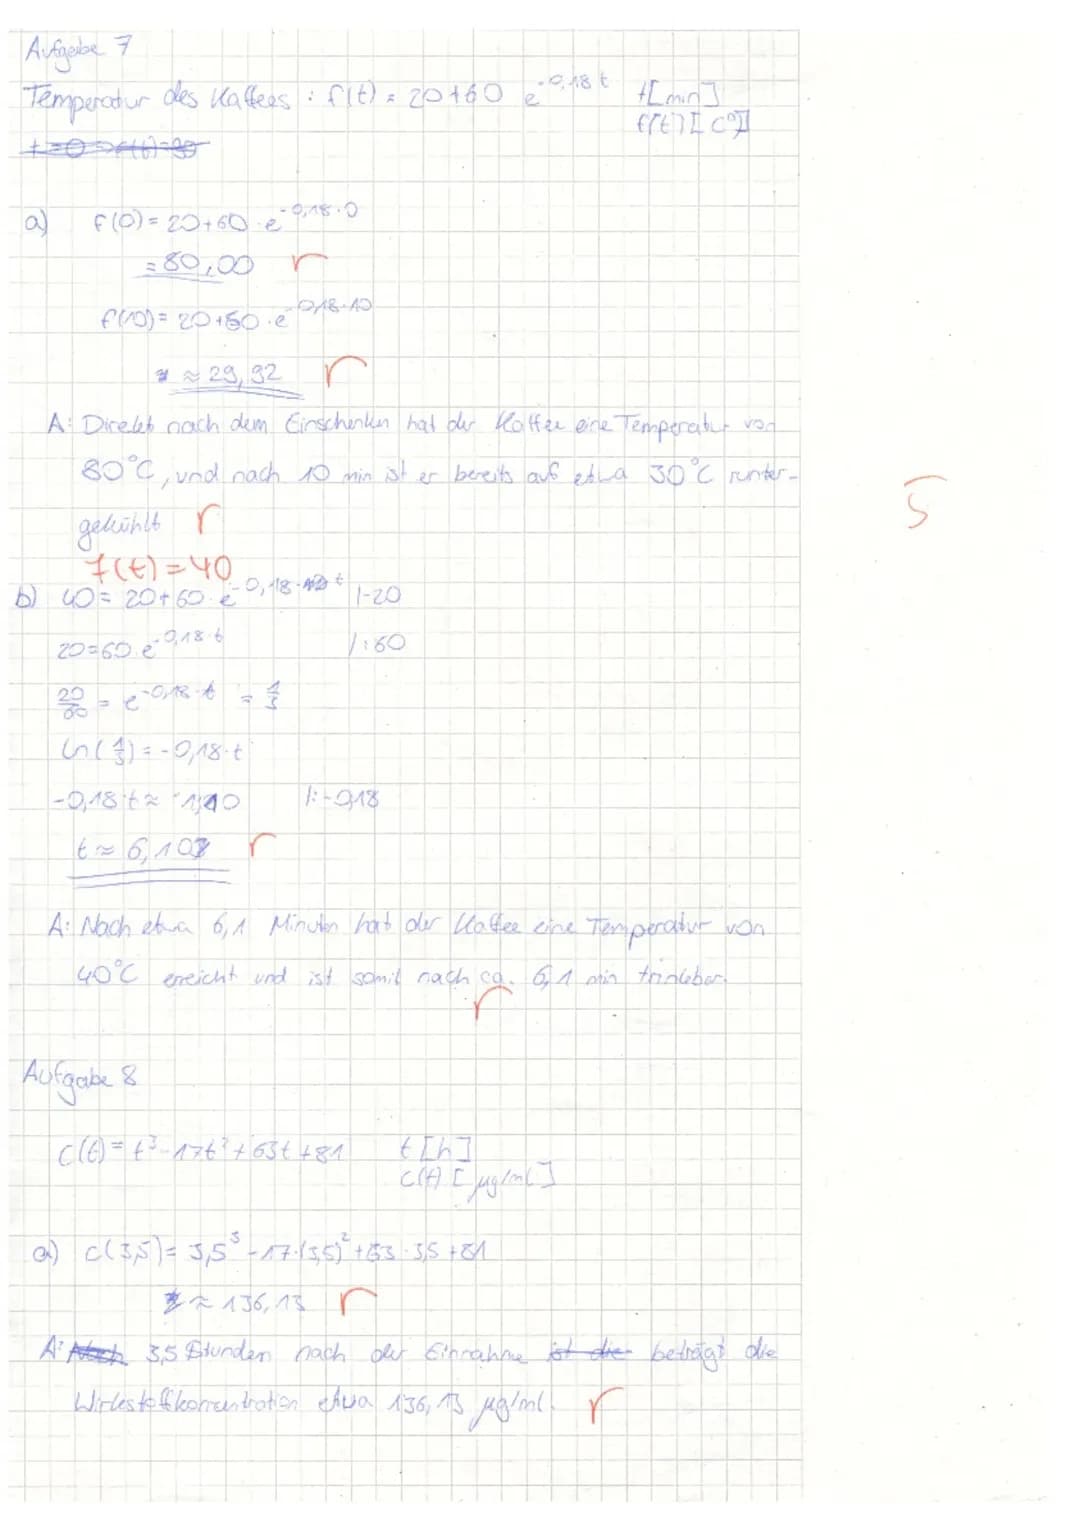 Aufgabe 7
Temperatur des Kaffees : f(t) = 20+60 e^-0,18 t t[min]
f(t) [C°]
t=0 => f(t)=90
a) f(0) = 20+60·e^-0,18·0
= 80,00 r
f(10) = 20+60·e^-0,18·10
≈ 29,92 r
A: Direkt nach dem Einschenken hat der Kaffee eine Temperatur von
80°C, und nach 10 min ist er bereits auf etwa 30°C runter-
gekühlt r
5
f(t) = 40
b) 40 = 20+60·e^-0,18·t |-20
20=60·e^-0,18·t |:60
20/60 = e^-0,18·t = 1/3
ln(1/3) = -0,18·t
-0,18·t ≈ -1,10 |:-0,18
t ≈ 6,103 r
A: Nach etwa 6,1 Minuten hat der Kaffee eine Temperatur von
40°C erreicht und ist somit nach ca. 6,1 min trinkbar. r
Aufgabe 8
C(t) = t³-17t²+63t+81 t [h]
C(t) [µg/ml]
a) C(3,5) = 3,5³ -17·(3,5)² +63·3,5+81
≈ 136,13 r
A: Nach 3,5 Stunden nach der Einnahme ist die beträgt die
Wirkstoffkonzentration etwa 136,13 µg/ml. r